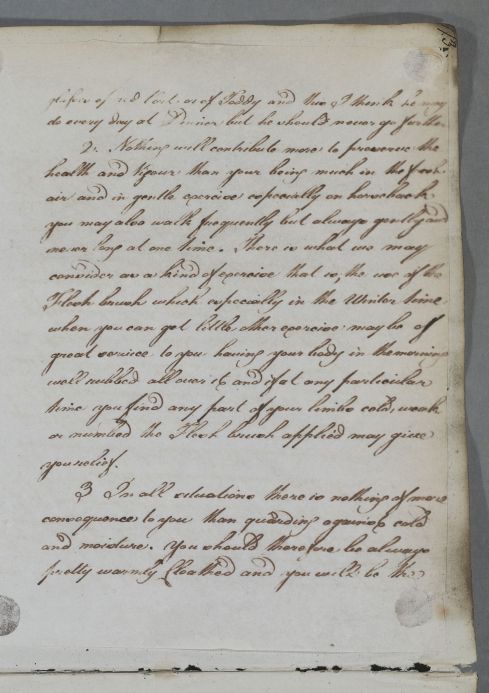 of red Port or of Toddy and this I think he may
do every day at Dinner but he should never go further
2. Nothing will contribute more to preserve the
health and Vigour than your being much in the fresh
air and in gentle exercise especially on horseback
you may also walk frequently but always gently and
never long at one time. There is what we may
consider as a kind of exercise that is, the use of the
Flesh brush which especially in the Winter time
when you can get little other exercise may be of
great service to you having your body in the morning
well rubbed all over it and if at any particular
time you find any part of your limbs cold, weak
or numbed the Flesh brush applied may give
you relief.
3 In all situations there is nothing of more
consequence to you than guarding against cold
and moisture. You should therefore be always
pretty warmly Cloathed and you will be the